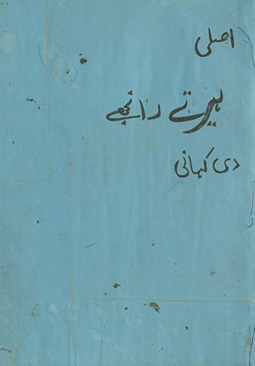 اصلی
ہیر تے رانجھے
دی کہانی